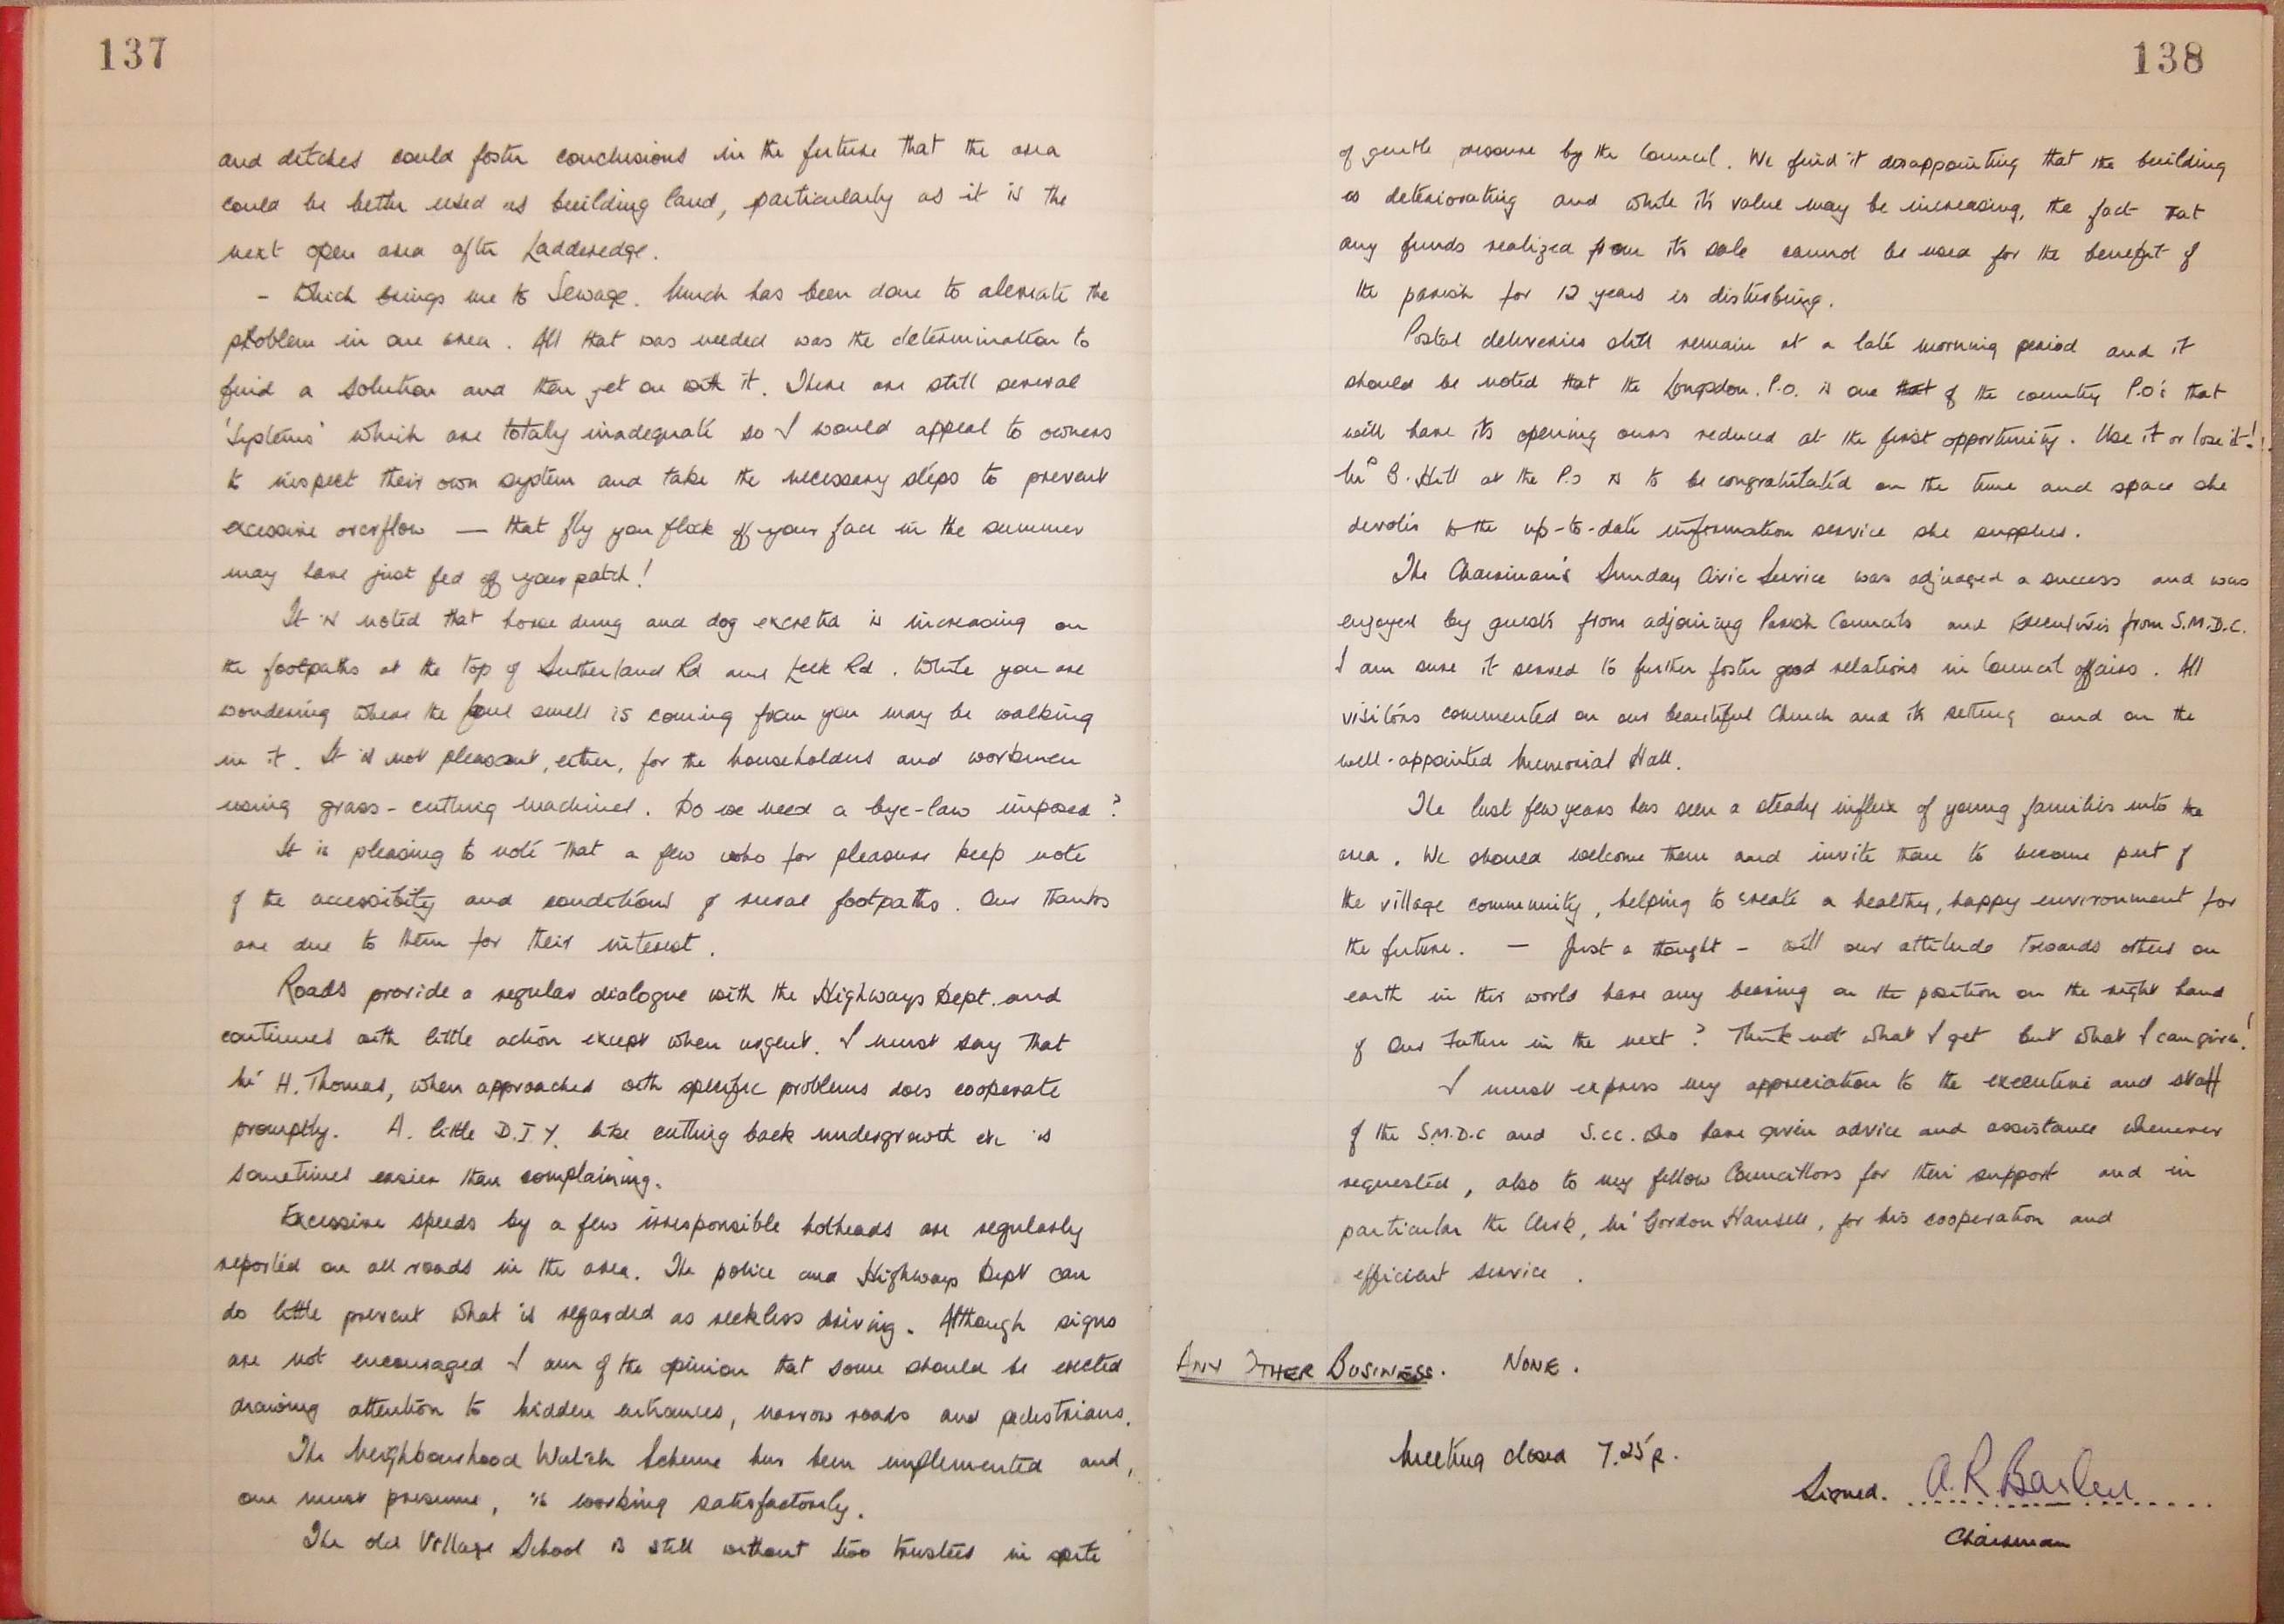 137
and ditches could foster conclusions in the future that the area
could be better used as building land, particularly as it is the
next open area after Ladderedge.
- Which brings me to Sewage. Much has been done to aleviate the
problem in one area. All that was needed was the determination to
find a solution and then get on with it. There are still several
'Systems' which are totally inadequate so I would appeal to owners
to inspect their own system and take the necessary steps to prevent
excessive overflow — that fly you flick off your face in the summer
may have just fed off your patch!
It is noted that horse dung and dog excreta is increasing on
the footpaths at the top of Sutherland Rd and Leek Rd. While you are
wondering where the foul smell is coming from you may be walking
in it. It is not pleasant, either, for the householders and workmen
using grass-cutting machines. Do we need a bye-law imposed?
It is pleasing to note that a few who for pleasure keep note
of the accessibity and conditions of rural footpaths. Our thanks
are due to them for their interest.
Roads provide a regular dialogue with the Highways Dept. and
continues with little action except when urgent. I must say that
Mr H. Thomas, when approached with specific problems does cooperate
promptly. A. little D.I.Y. like cutting back undergrowth etc is
sometimes easier than complaining.
Excessive speeds by a few irresponsible hotheads are regularly
reported on all roads in the area. The police and Highways Dept can
do little prevent what is regarded as reckless driving. Although signs
are not encouraged I am of the opinion that some should be erected
drawing attention to hidden entrances, narrow roads and pedestrians.
The Neighbourhood Watch Scheme has been implemented and,
one must presume, is working satisfactorily.
The old Village School is still without two trustees in spite
138
of gentle pressure by the Council. We find it disappointing that the building
is deteriorating and while its value may be increasing, the fact that
any funds realized from its sale cannot be used for the benefit of
the parish for 12 years is disturbing.
Postal deliveries still remain at a late morning period and it
should be noted that the Longsdon. P.O. is one that of the country P.O's that
will have its opening ours reduced at the first opportunity. Use it or lose it!!
Mrs B. Hill at the P.O is to be congratulated on the time and space she
devotes to the up-to-date information service she supplies.
The Chairman's Sunday Civic Service was adjudged a success and was
enjoyed by guests from adjoining Parish Councils and Executives from S.M.D.C.
I am sure it served to further foster good relations in Council affairs. All
visitors commented on our beautiful Church and its setting and on the
well-appointed Memorial Hall.
The last few years has seen a steady influx of young families into the
area. We should welcome them and invite them to become part of
the village community, helping to create a healthy, happy environment for
the future. — Just a thought - will our attitude towards others on
earth in this world have any bearing on the position on the right hand
of Our Father in the next? Think not what I get but what I can give!
I must express my appreciation to the executive and staff
of the S.M.D.C and S.C.C. who have given advice and assistance whenever
requested, also to my fellow Councillors for their support and in
particular the Clerk, Mr Gordon Hansell, for his cooperation and
efficient service.
ANY OTHER BUSINESS. NONE.
Meeting closed 7.25p.
Signed. A. R. 
Chairman